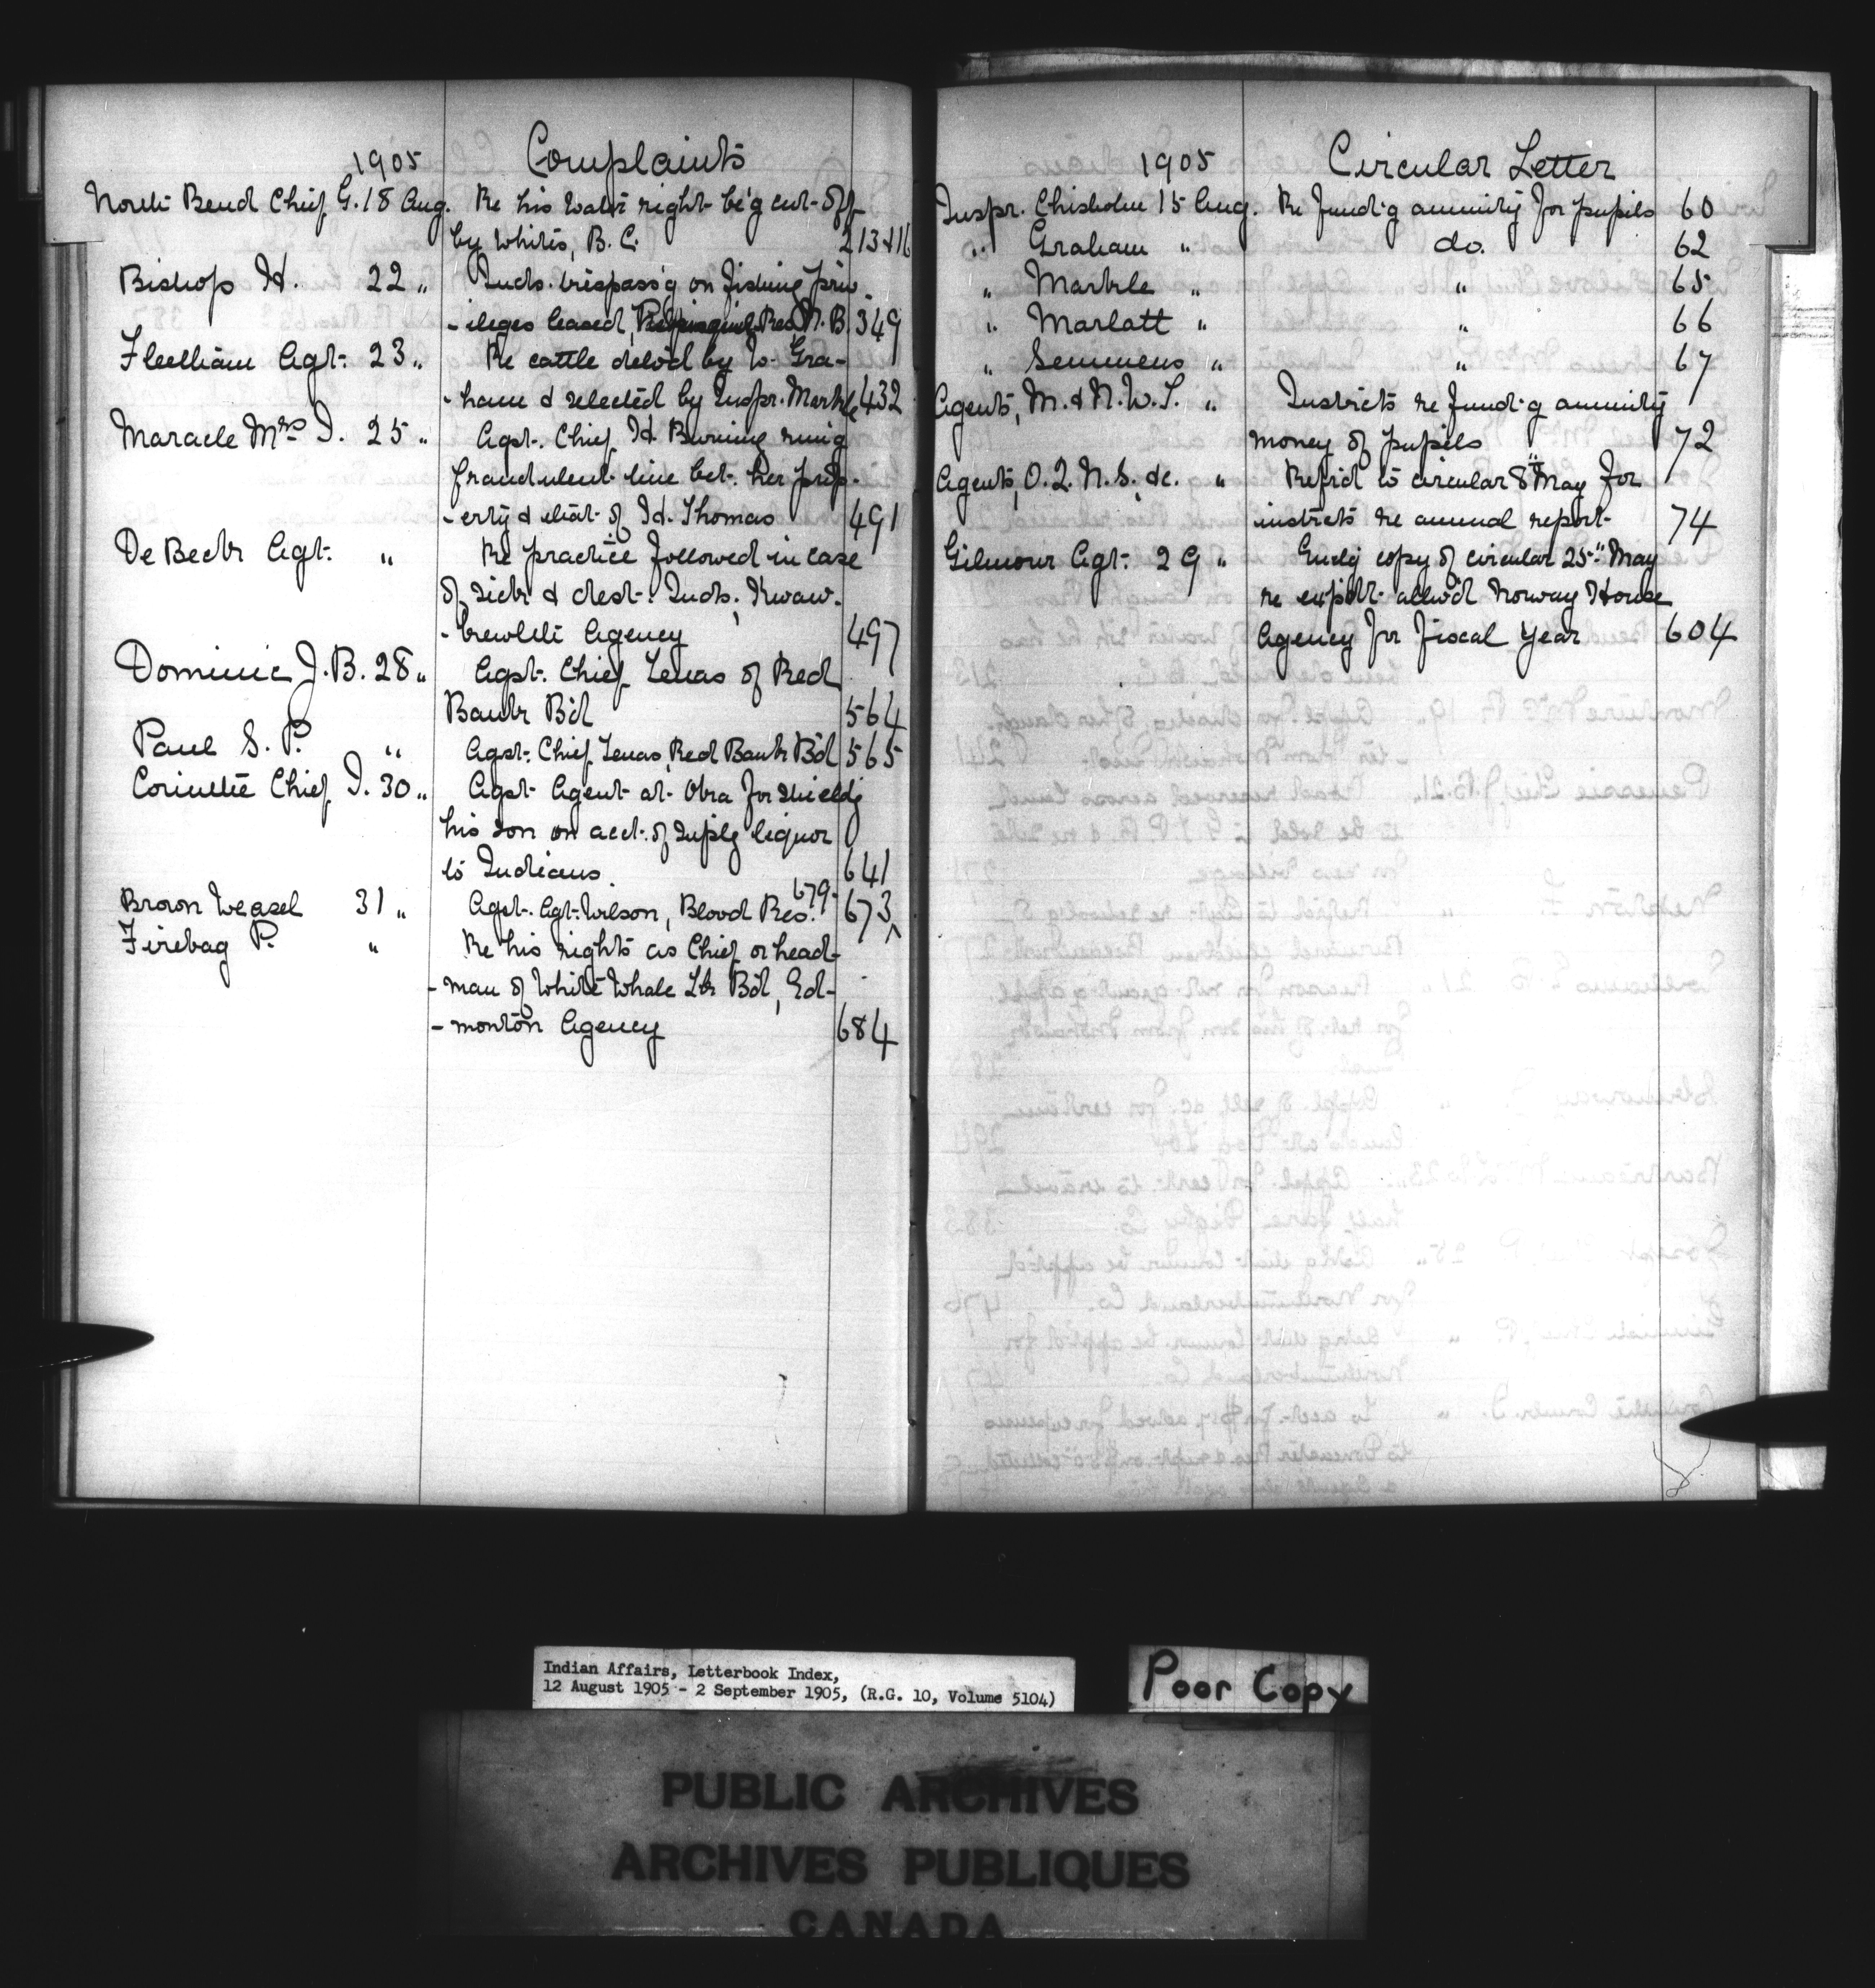 1905 Complaints
North Bend Chief G. 18 Aug. Re his water right be'g cut off
by whites, B.C. 213 & 16
Bishop H. 22 " Inds. trespass'g on fishing priv-
-ileges leased, Res. N.B. 349
Fleetham Agt. 23 " Re cattle deliv'd by W. Gra-
-ham & selected by Inspr. Markle 432
Maracle Mrs I. 25 " Agst. Chief H. Burning runng
fraudulent line bet. her prop-
-erty & that of H. Thomas 491
De Beck Agt. " Re practice followed in case
of sick & dest. Inds., Kwaw-
-kewlth Agency 497
Dominic J.B. 28 " Agst. Chief Lenas of Red
Bank B'd 564
Paul S. P. " Agst. Chief Lenas, Red Bank B'd 565
Corinthe Chief I. 30 " Agst. Agent at Oka for shieldg
his son on acct. of suplg liquor
to Indians. 641
Brown Weasel 31 " Agst. Agt. Wilson, Blood Res. 673 679
Firebag P. " Re his rights as Chief or head-
-man of White Whale Lk B'd, Ed-
-monton Agency 684
1905 Circular Letter
Inspr. Chisholm 15 Aug. Re fund'g annuity for pupils 60
" Graham " do. 62
" Markle " " 65
" Marlatt " " 66
" Semmens " " 67
Agents, M. & N.W.T. " Instructs re fund'g annuity
money of pupils 72
Agents, O. Q. N.S. &c. " Ref'rd to circular 8th May for
instructs re annual report 74
Gilmour Agt. 29 " Encl'g copy of circular 25th May
re expdt. allw'd Norway House
Agency for fiscal year 604
Indian Affairs, Letterbook Index,
12 August 1905 - 2 September 1905, (R.G. 10, Volume 5104)
Poor Copy
PUBLIC ARCHIVES
ARCHIVES PUBLIQUES
CANADA